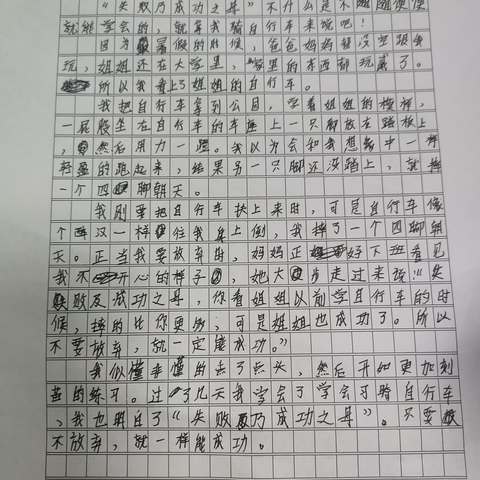 "失败乃成功之母"不什么是不随随便便
就能学会的，就拿我骑自行车来说吧！
因为寒假的时候，爸爸妈妈都没空跟我
玩，姐姐还在大学里，家里的东西都玩腻了。
所以我看上了姐姐的自行车。
我把自行车拿到公园，学着姐姐的模样，
一屁股坐在自行车的车座上一只脚放在踏板上
，然后用力一蹬。我以为会和我想象中一样
轻盈的跑起来，结果另一只脚还没踏上，就摔
一个四脚朝天。
我刚要把自行车扶上来时，可是自行车像
个醉汉一样往我身上倒，我摔了一个四脚朝
天。正当我要放弃时，妈妈正好下班看见
我不开心的样子，她大步走过来说"失
败及成功之母，你看姐姐以前学自行车的时
候，摔的比你更多，可是姐姐也成功了。所以
不要放弃，就一定能成功。"
我似懂非懂的点了点头，然后开始更加刻
苦的练习。过了几天我学会了学会了骑自行车
，我也明白了"失败乃成功之母"。只要
不放弃，就一样能成功。